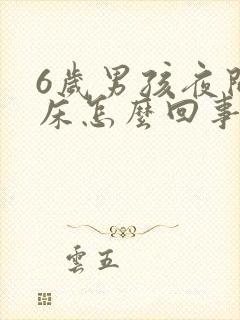 6歲男孩夜間
床怎麼回事
雲五